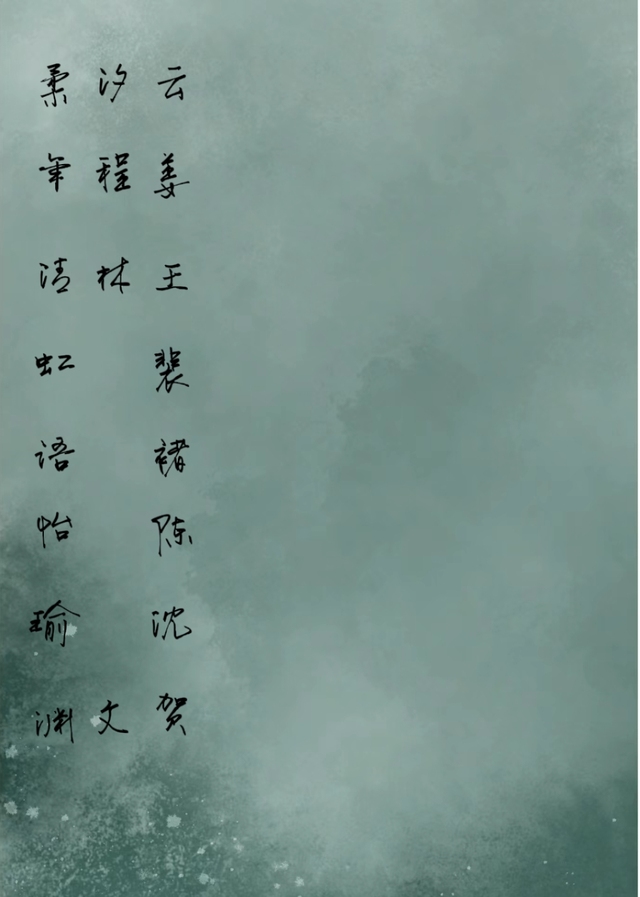 云汐柔
姜程年
王林清
裴虹
褚语
陈怡
沈瑜
贺文渊